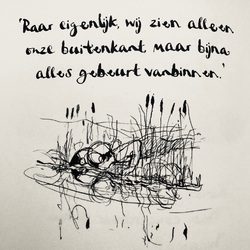 'Raar eigenlijk, wij zien alleen
onze buitenkant maar bijna
alles gebeurt vanbinnen.'